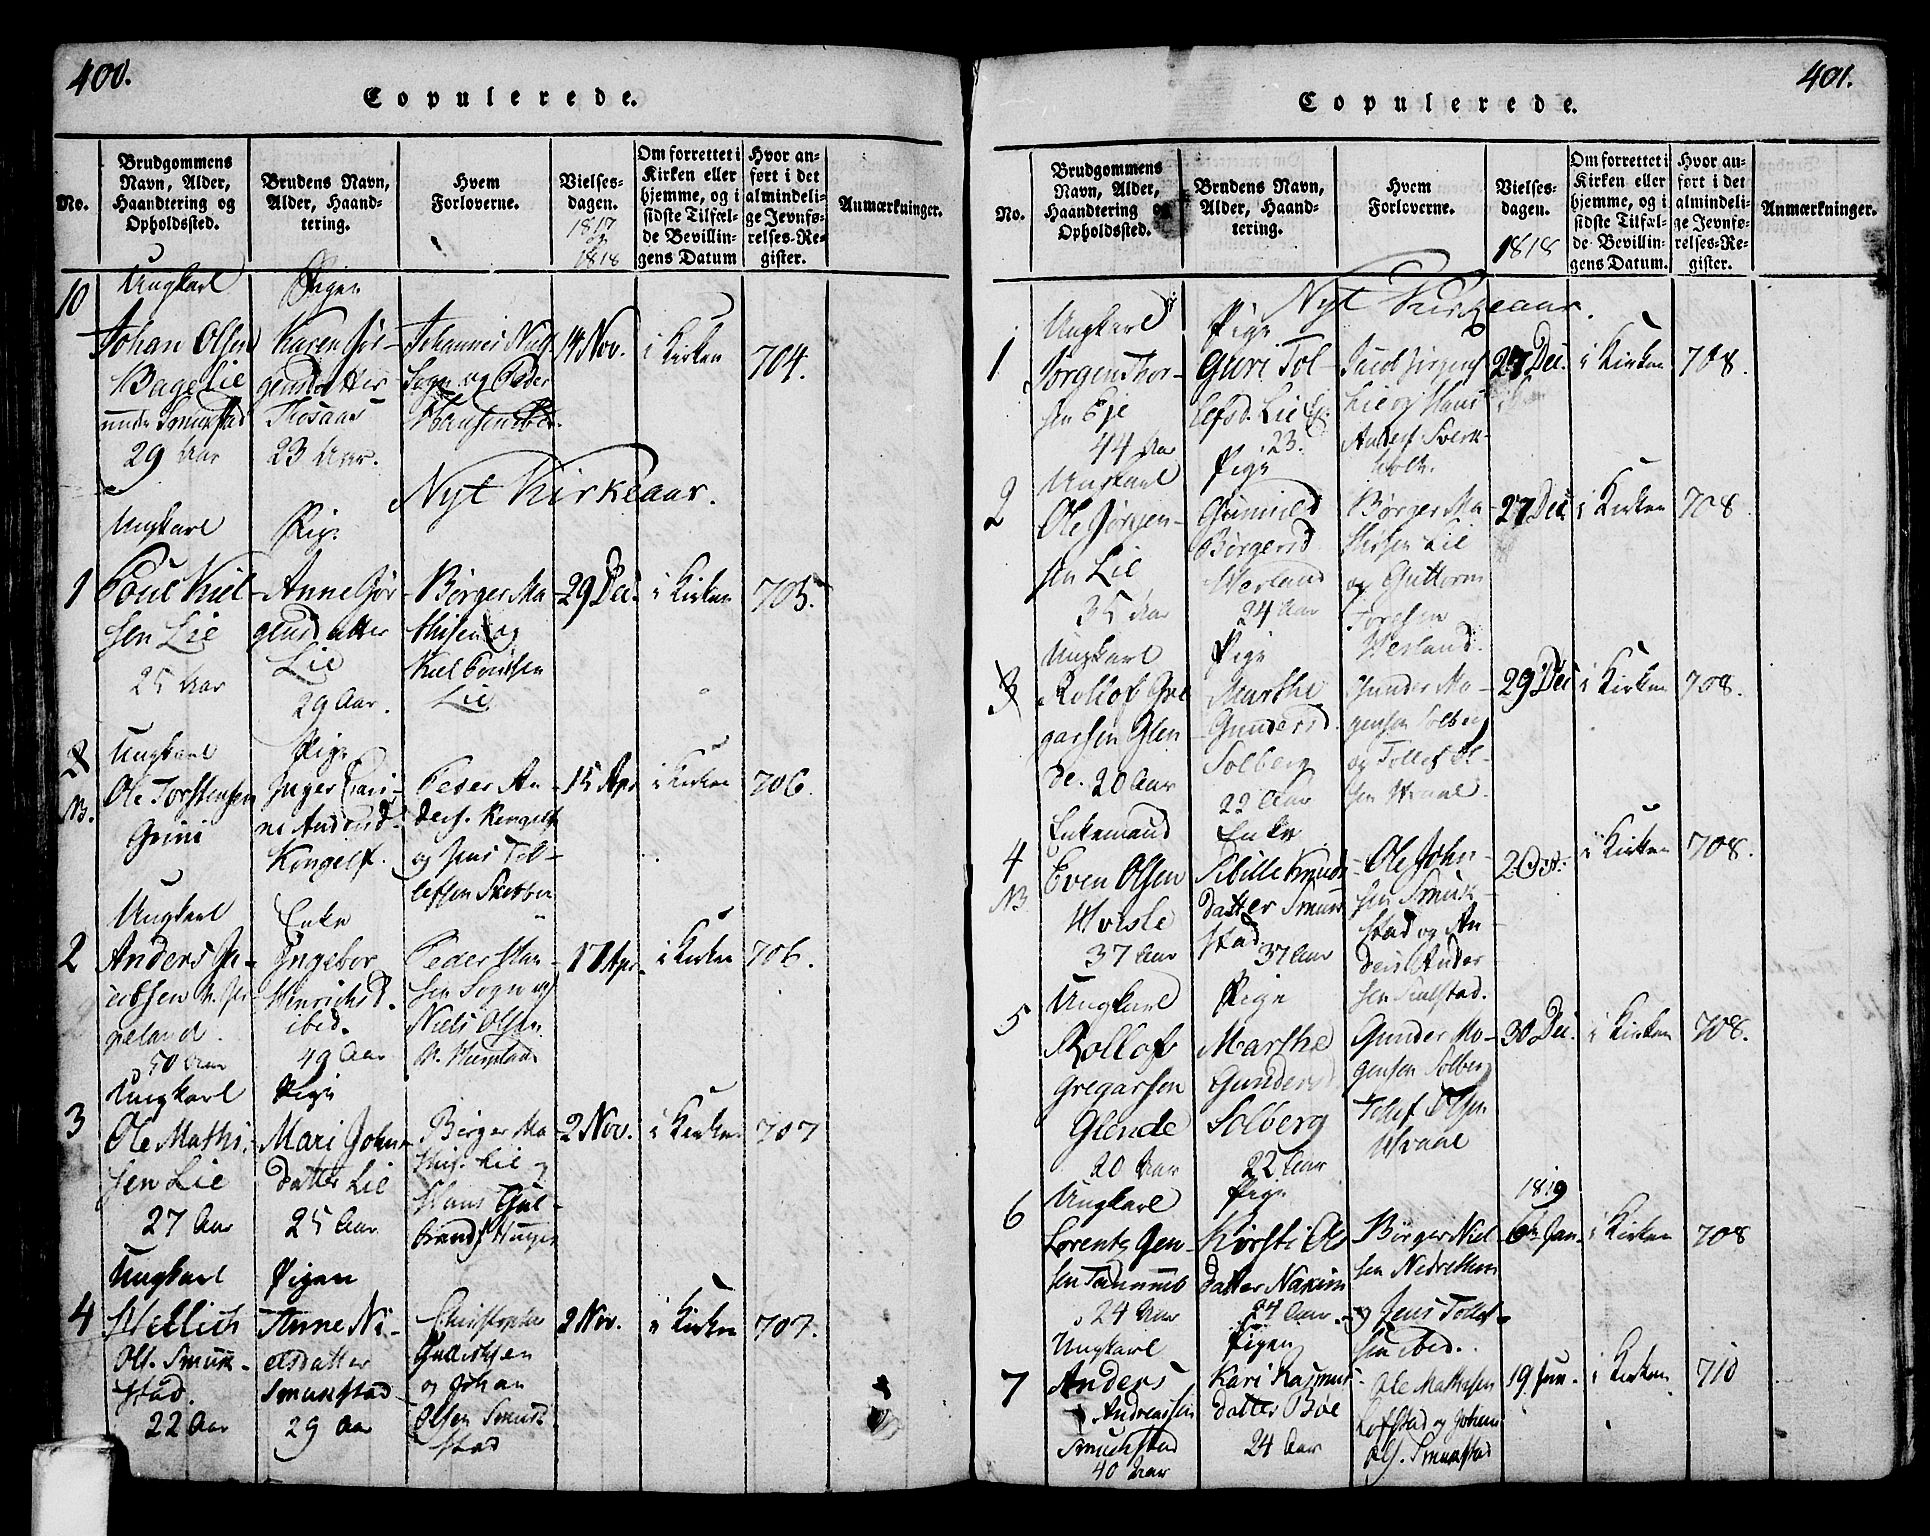 400.
Copulerede.
No.
Brudgommens Navn, Alder, Haandtering og Opholdssted.
Brudens Navn, Alder, Haandtering.
Hvem Forloverne.
Vielsesdagen.
1817 og 1818
Om forrettet i Kirken eller hjemme, og i sidste Tilfælde Bevillingens Datum
Hvor anført i det almindelige Jevnførelses-Register.
Anmærkninger.
10
Ungkarl
Johan Olsen
Bage Lie
Smukstad
29 Aar
Pigen
Karen Jør-
gensdatter
23 Aar.
Johannes
og Peder
Hansen
14 Nov.
i Kirken
704.
Nyt Kirkeaar.
1
Ungkarl
Poul Kiel-
sen Lie
25 Aar
Pige
Anne Jør-
gensdatter
Lie
29 Aar.
Børger Ma-
thisen og
Kiel Poulsen
Lie
29 Dec.
i Kirken
705.
2
NB.
Ungkarl
Ole Torstensen
Grini
Pige
Inger Cari-
ne Andersd.
Kongelf.
Peder An-
ders. Kongelf
og Jens Tol-
lefsen
15 Apr
i Kirken
706.
2
Ungkarl
Anders Ja-
cobsen
50 Aar
Enke
Ingebor
Henrichsd.
ibid.
49 Aar
Peder Han-
sen Sogn og
Niels Olsen
17 Apr.
i Kirken
706.
3
Ungkarl
Ole Mathi-
sen Lie
27 Aar
Pige
Mari Johns-
datter Lie
25 Aar
Børger Ma-
this. Lie og
Hans Gul-
brands.
2 Nov.
i Kirken
707
4
Ungkarl
Hellich
Ols. Smuk-
stad.
22 Aar
Pigen
Anne Ni-
elsdatter
Smukstad
29 Aar
Christopher
Gulliksen
og Johan
Olsen Smuk-
stad
2 Nov.
i Kirken
707.
401.
Copulerede.
No.
Brudgommens Navn, Alder, Haandtering og Opholdssted.
Brudens Navn, Alder, Haandtering.
Hvem Forloverne.
Vielsesdagen.
1818
Om forrettet i Kirken eller hjemme, og i sidste Tilfælde Bevillingens Datum.
Hvor anført i det almindelige Jevnførelses-Register.
Anmærkninger.
Nyt Kirkeaar.
1
Ungkarl
Jørgen Thor-
sen Eje
44 Aar
Pige
Guri Tol-
lefsd. Lie
23.
Jacob Jørgens.
Lie og Hans
Anders.
27 Dec.
i Kirken
708.
2
Ungkarl
Ole Jørgen-
sen Lie
35 Aar
Pige
Gunnild
Børgersd.
Wesland
24 Aar
Børger Ma-
thisen Lie
og Guttorm
Toresen
Wesland.
27 Dec.
i Kirken
708
3
Ungkarl
Rollof Gre
garsen Glen
de. 20 Aar
Pige
Marthe
Gundersd.
Solberg
22 Aar
Gunder Mo-
gensen Solberg
og Tollef Ol-
sen Hvaal.
29 Dec
i Kirken
708.
4
NB
Enkemand
Even Olsen
Hvisle
37 Aar
Enke
Sibille Knuds
datter Smuk
stad 37 Aar
Ole John-
sen Smuk
stad og An-
ders Ander
sen
i Kirken
708.
5
Ungkarl
Rollof
Gregarsen
Glende
20 Aar
Pige
Marthe
Gundersd.
Solberg
22 Aar
Gunder Mo-
gensen Solberg
Tolef Olsen
Hvaal
30 Dec.
i Kirken
708.
6
Ungkarl
Lorents Jen-
sen
24 Aar
Pige
Kirsti Ols
datter
24 Aar.
Børger Niel-
sen
og Jens Tollef-
sen ibid.
1819
6te Jan.
i Kirken
708
7
Ungkarl
Anders
Andreassen
Smuchstad
40 Aar
Pigen
Kari Rasmus-
datter Bøe
24 Aar
Ole Mathisen
Lofstad og Johan
Ols. Smukstad
19 Jun.
i Kirken
710